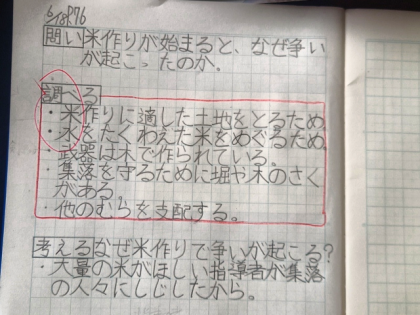 6/18 P76
問い 米作りが始まると、なぜ争い
が起こったのか。
調べる
・米作りに適した土地をとるため。
・水をたくわえた米をめぐるため。
・武器は木で作られている。
・集落を守るために堀や木のさく
がある。
・他のむらを支配する。
考える なぜ米作りで争いが起こる?
・大量の米がほしい指導者が集落
の人々にしじしたから。